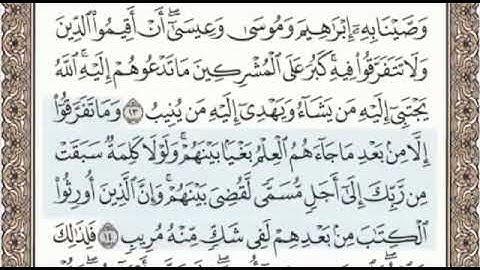 وَصَّيْنَا بِهِۦٓ إِبْرَٰهِيمَ وَمُوسَىٰ وَعِيسَىٰٓ ۖ أَنْ أَقِيمُوا۟ ٱلدِّينَ
وَلَا تَتَفَرَّقُوا۟ فِيهِ ۚ كَبُرَ عَلَى ٱلْمُشْرِكِينَ مَا تَدْعُوهُمْ إِلَيْهِ ۚ ٱللَّهُ
يَجْتَبِىٓ إِلَيْهِ مَن يَشَآءُ وَيَهْدِىٓ إِلَيْهِ مَن يُنِيبُ ١٣ وَمَا تَفَرَّقُوٓا۟
إِلَّا مِنۢ بَعْدِ مَا جَآءَهُمُ ٱلْعِلْمُ بَغْيًۢا بَيْنَهُمْ ۚ وَلَوْلَا كَلِمَةٌ سَبَقَتْ
مِن رَّبِّكَ إِلَىٰٓ أَجَلٍ مُّسَمًّى لَّقُضِىَ بَيْنَهُمْ ۚ وَإِنَّ ٱلَّذِينَ أُورِثُوا۟
ٱلْكِتَٰبَ مِنۢ بَعْدِهِمْ لَفِى شَكٍّ مِّنْهُ مُرِيبٍ ١٤ فَلِذَٰلِكَ